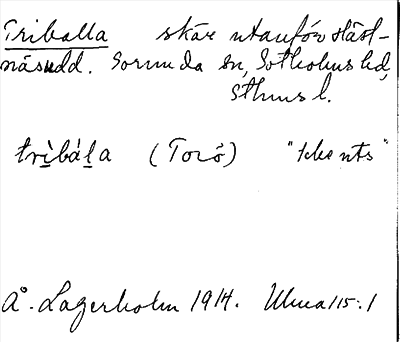 Triballa skär utanför Häst-
näsudd. Sorunda sn, Sotholms hd,
Sthms l.
trìbál̲a (Torö) "
Å. Lagerholm 1914. Ulma 115:1